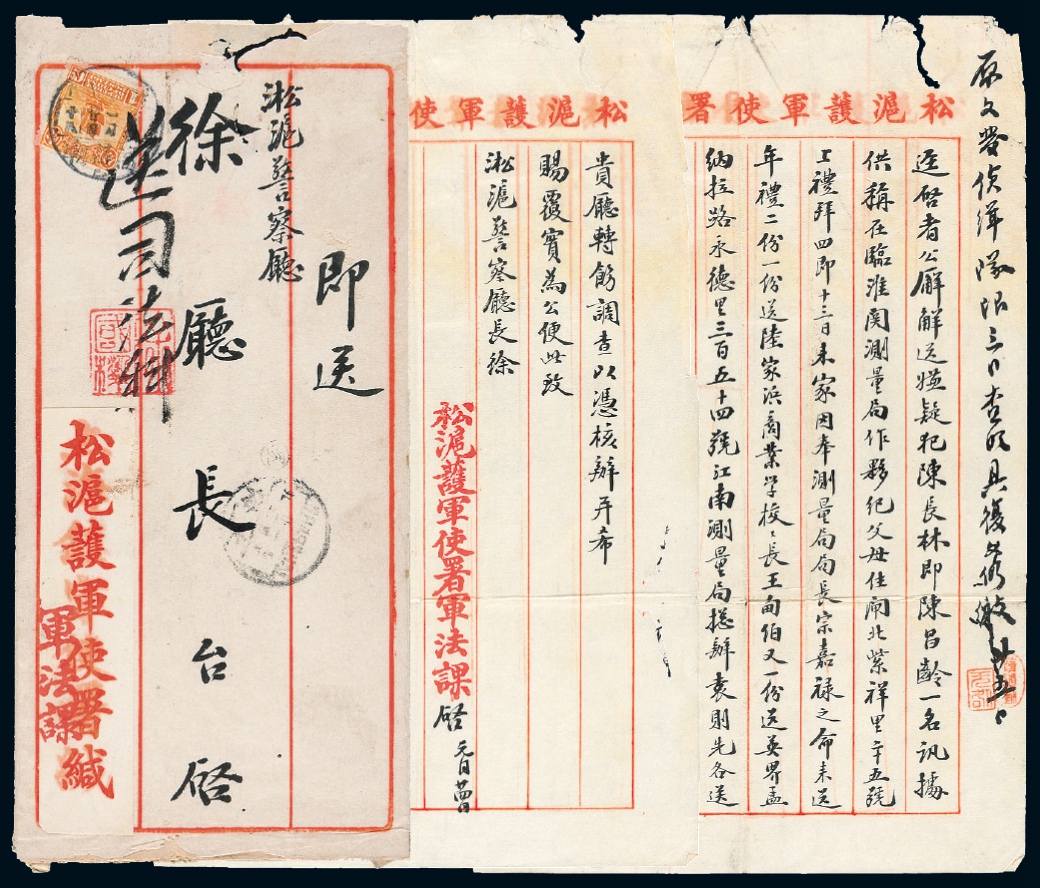 松滬護軍使署
原文發偵緝隊限三日查明具復
廿五日
逕啓者公廨解送嫌疑犯陳長林即陳昌齡一名訊據
供稱在臨淮関測量局作夥紀父母住閘北紫祥里
五號
上禮拜四即十三日来家因奉測量局局長宗嘉禄之命来送
年禮二份一份送陸家浜商業学校〻長王甸伯又一份送英界孟
納拉路永德里三百五十四號江南測量局總辦袁則先各送
松滬護軍使
貴廳轉飭調查以憑核辦并希
賜覆實為公便此致
淞滬警察廳長徐
松滬護軍使署軍法課
啓
元月廿四日
即送
淞滬警察廳
徐廳長台啓
送司法科
松滬護軍使署緘
軍法課